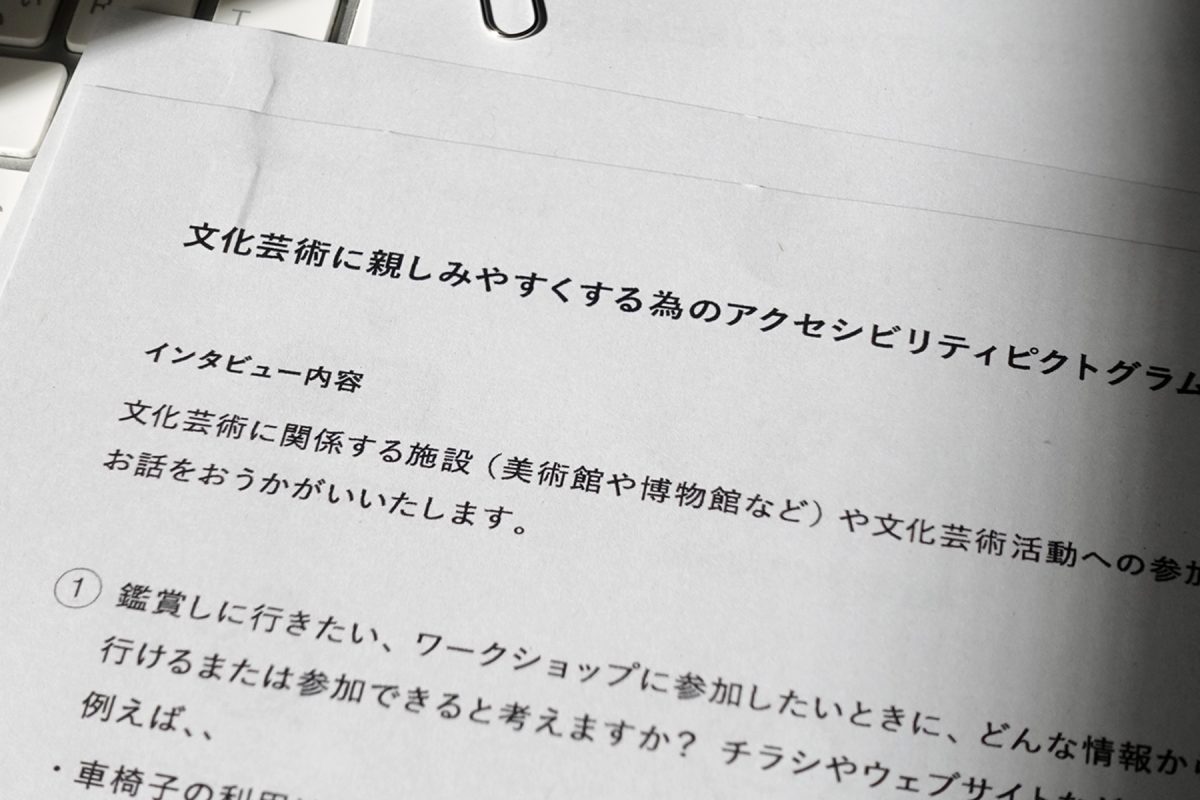 文化芸術に親しみやすくする為のアクセシビリティピクトグラム
インタビュー内容
文化芸術に関係する施設（美術館や博物館など）や文化芸術活動への参加
お話をおうかがいいたします。
① 鑑賞しに行きたい、ワークショップに参加したいときに、どんな情報から
行けるまたは参加できると考えますか？ チラシやウェブサイトなど
例えば、、
・車椅子の利用